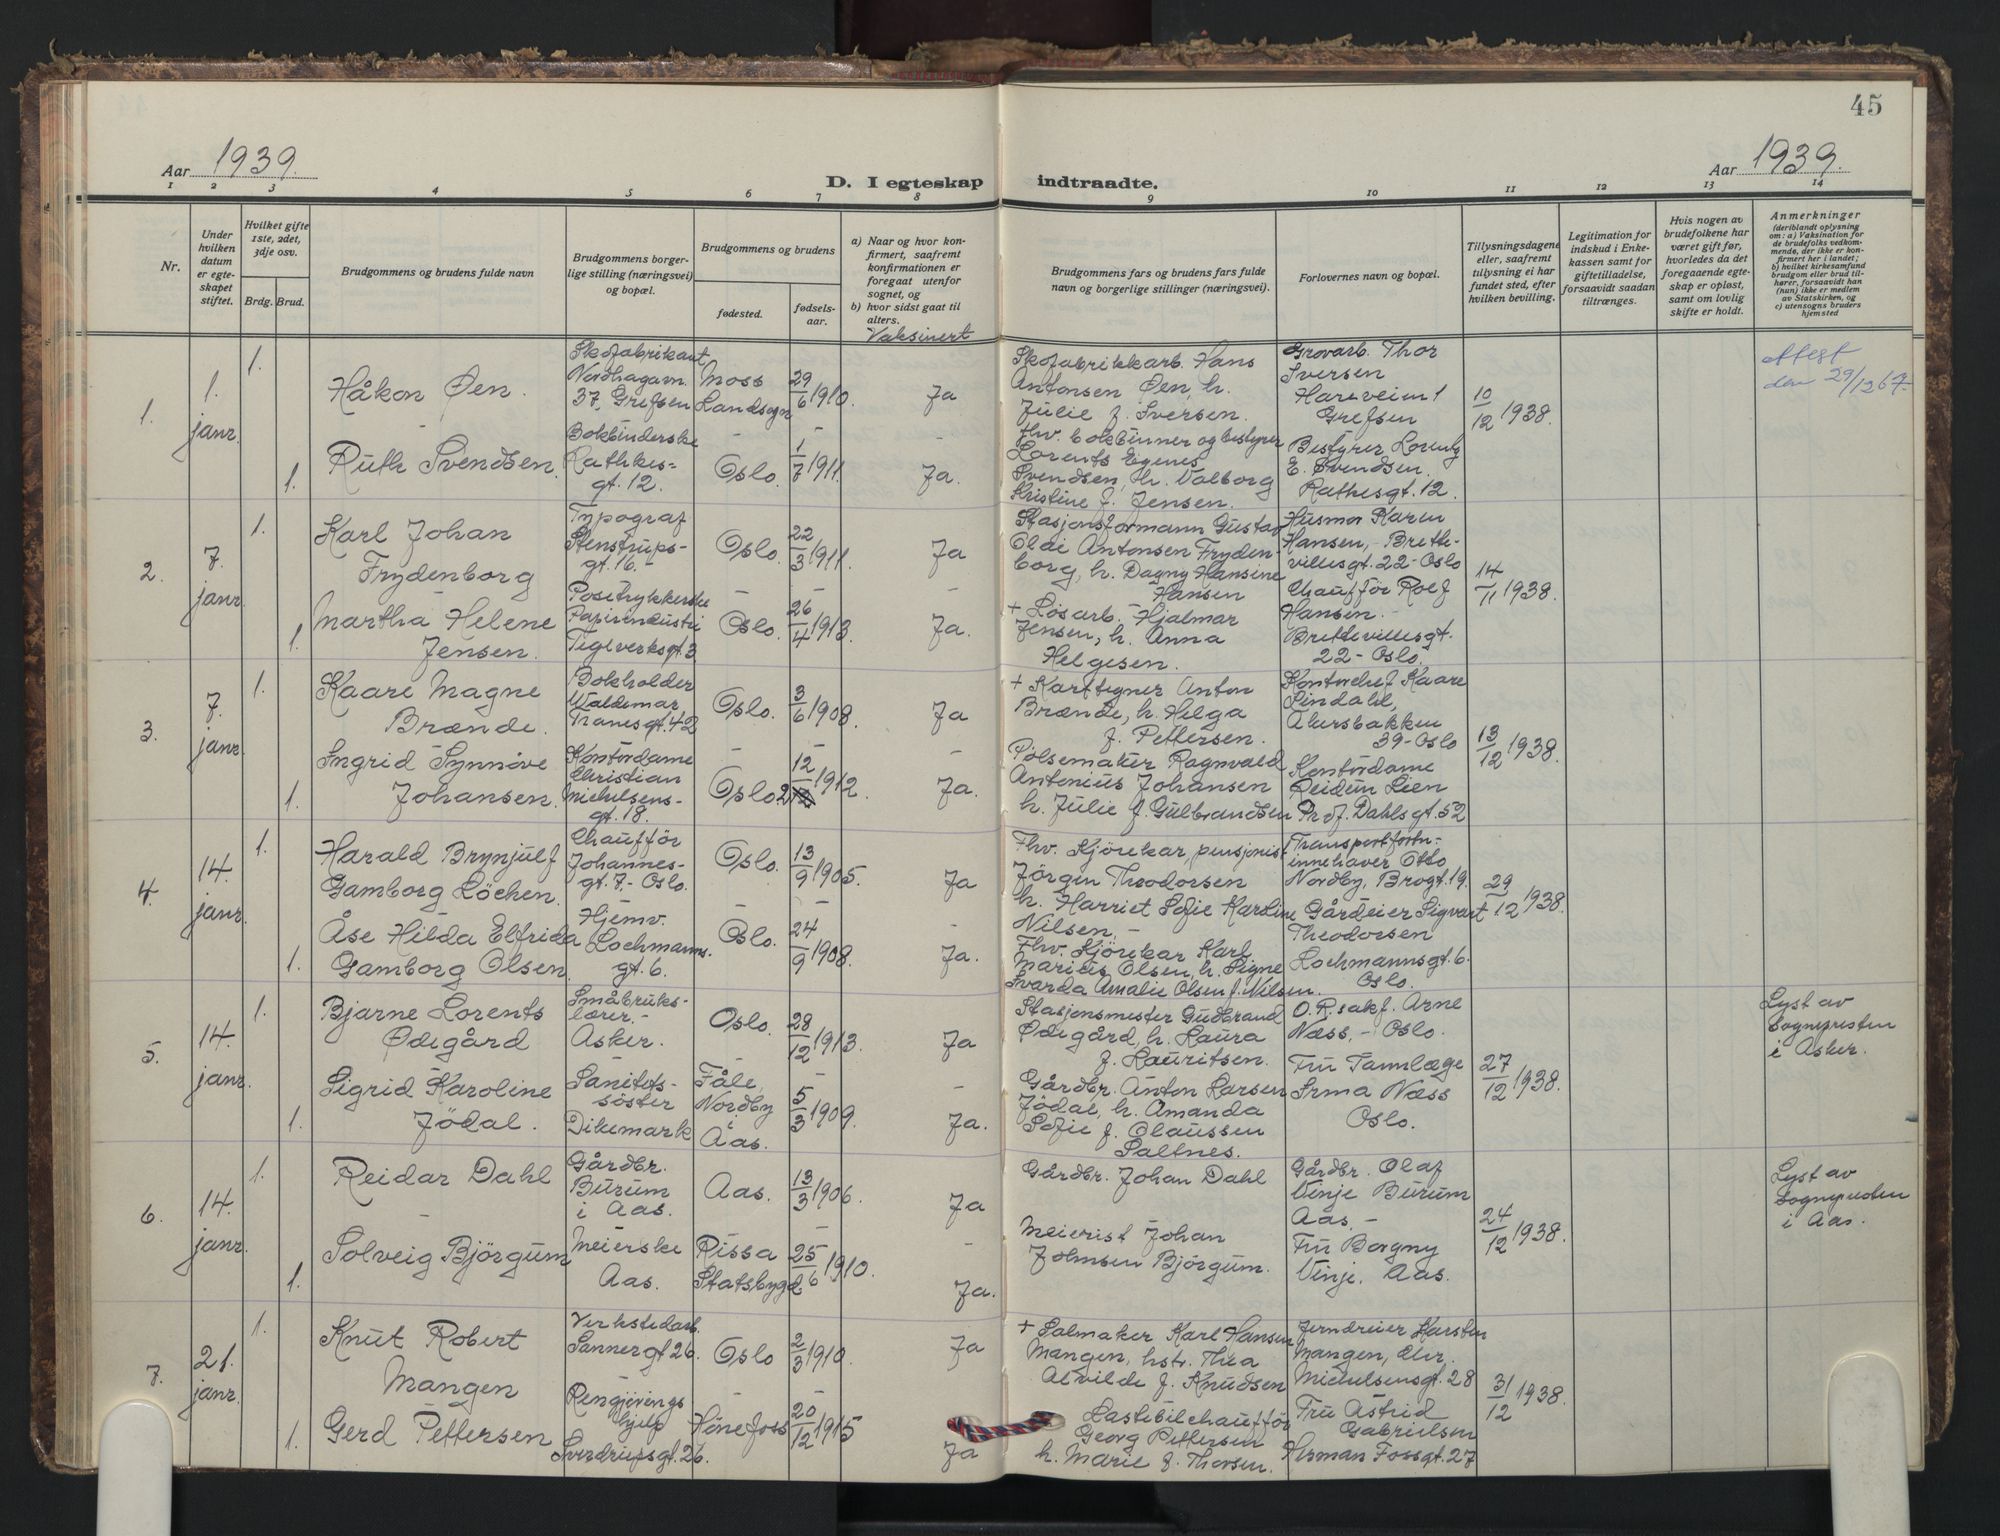 45
Aar 1939.
D. I egteskap indtraadte.
Aar 1939.
1 2 3 4 5 6 7 8 9 10 11 12 13 14
Nr.
Under hvilken datum er egteskapet stiftet.
Hvilket gifte 1ste, 2det, 3dje osv.
Brdg. Brud.
Brudgommens og brudens fulde navn
Brudgommens borgerlige stilling (næringsvei) og bopæl.
Brudgommens og brudens
fødested.
fødselsaar.
a) Naar og hvor konfirmert, saafremt konfirmationen er foregaat utenfor sognet, og
b) hvor sidst gaat til alters.
Vaksinert
Brudgommens fars og brudens fars fulde navn og borgerlige stillinger (næringsvei).
Forlovernes navn og bopæl.
Tillysningsdagene eller, saafremt tillysning ei har fundet sted, efter hvilken bevilling.
Legitimation for indskud i Enkekassen samt for giftetilladelse, forsaavidt saadan tiltrænges.
Hvis nogen av brudefolkene har været gift før, hvorledes da det foregaaende egteskap er opløst, samt om lovlig skifte er holdt.
Anmerkninger
(deriblandt oplysning om: a) Vaksination for de brudefolks vedkommende, der ikke er konfirmert her i landet; b) hvilket kirkesamfund brudgom eller brud tilhører, forsaavidt han (hun) ikke er medlem av Statskirken, og c) utensogns bruders hjemsted
1.
1. janr.
1.
Håkon Øen.
Skofabrikant
Nordhagavn.
37, Grefsen
Moss
Landsogn
29/6 1910.
Ja
Skofabrikkarb. Hans
Antonsen Øen, h.
Julie f. Iversen.
Grovarb. Thor
Iversen
Hareveien 1
Grefsen
10/12 1938.
Attest
den 29/12 67-
1.
Ruth Svendsen.
Bokbinderske
Rathkes=
gt. 12.
Oslo.
1/7 1911.
Ja.
Fhv. bokbinner og bestyrer
Lorents Egenes
Svendsen, h. Valborg
Kristine f. Jensen.
Bestyrer Lorentz
E. Svendsen.
Rathesgt. 12.
2.
7. janr.
1.
Karl Johan
Frydenborg
Typograf
Stenstrups-
gt. 16.-
Oslo.
22/3 1911.
Ja
Stasjonsformann Gustav
Oldi Antonsen Fryden-
borg, h. Dagny Hansine
Hansen
Husmor Karen
Hansen, - Brette-
villesgt. 22-Oslo
14/11 1938.
1.
Martha Helene
Jensen.
Posetrykkerske
Papirindustri
Teglverksgt. 3
Oslo.
26/4 1913.
Ja.
+ Løsarb. - Hjalmar
Jensen, h. Anna
Helgesen.
Chauffør Rolf
Hansen.-
Brettevillesgt.
22-Oslo.
3.
7. janr.
1.
Kaare Magne
Brænde.
Bokholder
Waldemar
Tranesgt. 42
Oslo.
3/6 1908.
Ja
+ Karttegner Anton
Brænde, h. Helga
f. Pettersen.
Kontorchef Kaare
Lindahl,
Akersbakken
39-Oslo
13/12 1938.
1.
Ingrid Synnøve
Johansen.
Kontordame
Christian
Michelsens-
gt. 18.
Oslo
12/2 1912.
Ja.
Pølsemaker Ragnvald
Antonius Johansen
h. Julie f. Gulbrandsen
Kontordame
Reidun Lien
Prof. Dahlsgt. 52
4.
14. janr.
1.
Harald Brynjulf
Gamborg Löchen.
Chauffør
Johannes-
gt. 7.- Oslo.
Oslo.
13/9 1905.
Ja
Fhv. Kjørekar, pensjonist
Jörgen Theodorsen
h. Harriet Sofie Karoline
Nilsen.-
Transportforr.-
innehaver Otto
Nordby, Brogt. 19.
29/12 1938.
1.
Åse Hilda Elfrida
Gamborg Olsen.
Hjemv.
Lochmanns.
gt. 6.
Oslo.
24/9 1908.
Ja.
Fhv. Kjörekar Karl
Marius Olsen, h. Signe
Svarda Amalie Olsen f. Nilsen.
Gårdeier Sigvart
Theodorsen
Lochmannsgt. 6.
Oslo.
5.
14. janr.
1.
Bjarne Lorents
Ødegård
Småbruks-
lærer.-
Asker.
Oslo.
28/12 1913.
Ja
Stasjonsmester Gudbrand
Ødegård, h. Laura
f. Lauritsen.
O.R.sakf. Arne
Næss.- Oslo.
27/12 1938.
Lyst av
sognepresten
i Asker.
1.
Sigrid Karoline
Jödal.
Sanitets-
søster
Dikemark
Fåle,
Nordby
i
Aas.
5/3 1909.
Ja.
Gårdbr. Anton Larsen
Jödal, h. Amanda
Sofie f. Olaussen
Saltnes.
Fru Tannlæge
Irma Næss
Oslo.
6.
14. janr.
1.
Reidar Dahl
Gårdbr.
Burum
i Aas.
Aas.
13/3 1906.
Ja
Gårdbr. Johan Dahl
Gårdbr. Olaf
Vinje Burum
Aas.-
24/12 1938.
Lyst av
Sognepresten
i Aas.
1.
Solveig Bjørgum
Meierske
Aas.
Rissa
Statsbygd
25/6 1910.
Ja.
Meierist Johan
Johnsen Bjørgum.
Fru Borgny
Vinje. Aas.
7.
21. janr.
1.
Knut Robert
Mangen
Verkstedarb.
Sannergt 26.
Oslo
2/3 1910.
Ja
+ Salmaker Karl Hansen
Mangen, hstr. Thea
Alvilde f. Knudsen
Jerndreier Karsten
Mangen, Chr.
Michelsensgt. 28
31/12 1938.
1.
Gerd Pettersen
Rengjørings
hjelp
Sverdrupsgt. 26.
Hønefoss
20/12 1915
Ja
Lastebilchauffør
Georg Pettersen
h. Marie f. Thorsen.
Fru Astrid
Gabrielsen
Herman Fossgt. 27